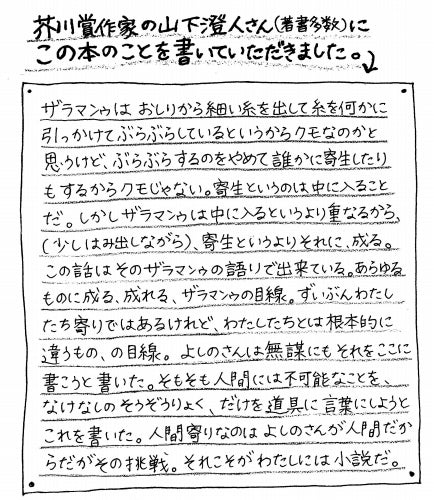 芥川賞作家の山下澄人さん(著書多数)に
この本のことを書いていただきました。
ザラマンゥは おしりから細い糸を出して糸を何かに
引っかけてぶらぶらしているというからクモなのかと
思うけど、ぶらぶらするのをやめて誰かに寄生したり
もするからクモじゃない。寄生というのは中に入ること
だ。しかしザラマンゥは中に入るというより重なるから、
(少しはみ出しながら)、寄生というよりそれに、成る。
この話はそのザラマンゥの語りで出来ている。あらゆる
ものに成る、成れる、ザラマンゥの目線。ずいぶんわたし
たち寄りではあるけれど、わたしたちとは根本的に
違うもの、の目線。よしのさんは無謀にもそれをここに
書こうと書いた。そもそも人間には不可能なことを、
なけなしのそうぞうりょく、だけを道具に言葉にしようと
これを書いた。人間寄りなのは よしのさんが人間だか
らだがその挑戦。それこそがわたしには小説だ。